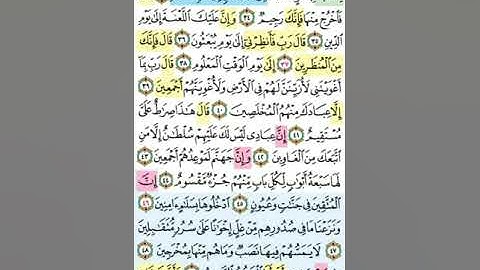 فَٱخْرُجْ مِنْهَا فَإِنَّكَ رَجِيمٌ ٣٤ وَإِنَّ عَلَيْكَ ٱللَّعْنَةَ إِلَىٰ يَوْمِ
ٱلدِّينِ ٣٥ قَالَ رَبِّ فَأَنظِرْنِىٓ إِلَىٰ يَوْمِ يُبْعَثُونَ ٣٦ قَالَ فَإِنَّكَ
مِنَ ٱلْمُنظَرِينَ ٣٧ إِلَىٰ يَوْمِ ٱلْوَقْتِ ٱلْمَعْلُومِ ٣٨ قَالَ رَبِّ بِمَآ
أَغْوَيْتَنِى لَأُزَيِّنَنَّ لَهُمْ فِى ٱلْأَرْضِ وَلَأُغْوِيَنَّهُمْ أَجْمَعِينَ ٣٩
إِلَّا عِبَادَكَ مِنْهُمُ ٱلْمُخْلَصِينَ ٤٠ قَالَ هَٰذَا صِرَٰطٌ عَلَىَّ
مُسْتَقِيمٌ ٤١ إِنَّ عِبَادِى لَيْسَ لَكَ عَلَيْهِمْ سُلْطَٰنٌ إِلَّا مَنِ
ٱتَّبَعَكَ مِنَ ٱلْغَاوِينَ ٤٢ وَإِنَّ جَهَنَّمَ لَمَوْعِدُهُمْ أَجْمَعِينَ ٤٣
لَهَا سَبْعَةُ أَبْوَٰبٍ لِّكُلِّ بَابٍ مِّنْهُمْ جُزْءٌ مَّقْسُومٌ ٤٤ إِنَّ
ٱلْمُتَّقِينَ فِى جَنَّٰتٍ وَعُيُونٍ ٤٥ ٱدْخُلُوهَا بِسَلَٰمٍ ءَامِنِينَ ٤٦
وَنَزَعْنَا مَا فِى صُدُورِهِم مِّنْ غِلٍّ إِخْوَٰنًا عَلَىٰ سُرُرٍ مُّتَقَٰبِلِينَ
٤٧ لَا يَمَسُّهُمْ فِيهَا نَصَبٌ وَمَا هُم مِّنْهَا بِمُخْرَجِينَ ٤٨